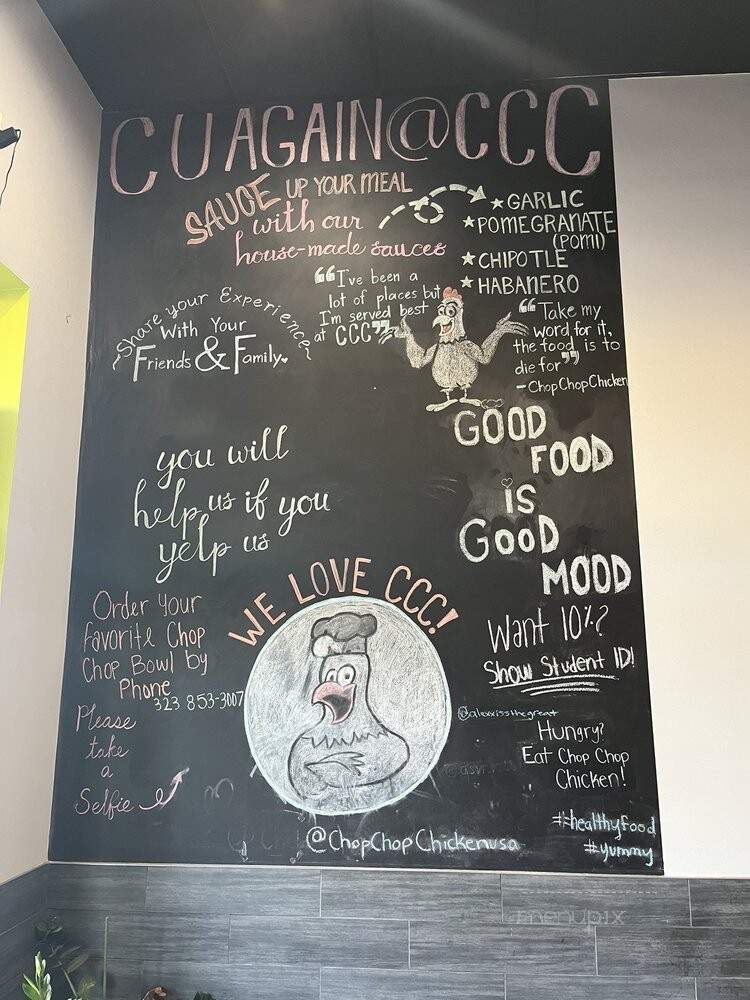 CUAGAIN@CCC
SAUCE UP YOUR MEAL
with our
house-made sauces
★ GARLIC
★ POMEGRANATE
(POMI)
★ CHIPOTLE
★ HABANERO
"I've been a
lot of places but
I'm served best
at CCC"
"Take my
word for it,
the food is to
die for"
- ChopChopChicken
~Share your Experience~
With Your
Friends & Family
GOOD
FOOD
is
GooD
MOOD
you will
help us if you
yelp us
WE LOVE CCC!
Order Your
favorite Chop
Chop Bowl by
Phone
323 853-3007
Please
take
a
Selfie
Want 10%?
Show Student ID!
@alexxissthegreat
Hungry?
Eat Chop Chop
Chicken!
#healthyfood
#yummy
@ChopChopChickenusa
menupix